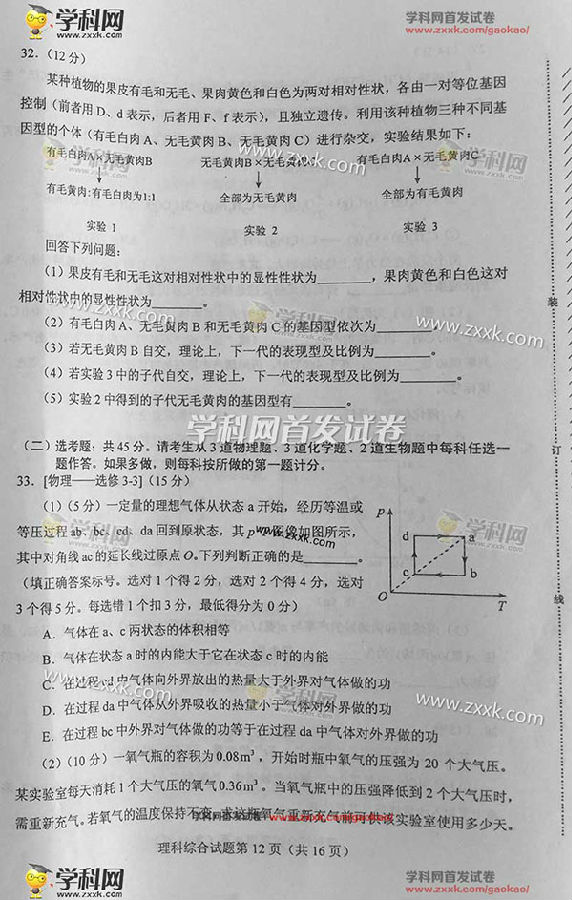 学科网
www.zxxk.com
学科网首发试卷
www.zxxk.com/gaokao/
32.(12分)
某种植物的果皮有毛和无毛、果肉黄色和白色为两对相对性状,各由一对等位基因
控制(前者用D、d表示,后者用F、f表示),且独立遗传,利用该种植物三种不同基
因型的个体(有毛白肉A、无毛黄肉B、无毛黄肉C)进行杂交,实验结果如下:
有毛白肉A×无毛黄肉B 无毛黄肉B×无毛黄肉 有毛白肉A×无毛黄肉C
www.zxxk.com
学科网
有毛黄肉:有毛白肉为1:1 全部为无毛黄肉 全部为有毛黄肉
实验 1 实验 2 实验 3
回答下列问题:
(1)果皮有毛和无毛这对相对性状中的显性性状为______,果肉黄色和白色这对
相对性状中的显性性状为______。
(2)有毛白肉A、无毛黄肉B和无毛黄肉C的基因型依次为______
www.zxxk.com
学科网
www.zxxk.com
(3)若无毛黄肉B自交,理论上,下一代的表现型及比例为______。
(4)若实验3中的子代自交,理论上,下一代的表现型及比例为______。
(5)实验2中得到的子代无毛黄肉的基因型有______
学科网首发试卷
(二)选考题:共45分。请考生从3道物理题、3道化学题、2道生物题中每科任选一
题作答。如果多做,则每科按所做的第一题计分。
33.[物理——选修3-3](15分)
(1)(5分)一定量的理想气体从状态a开始,经历等温或
等压过程ab、bc、cd、da回到原状态,其p 图像如图所示,
www.zxxk.com
其中对角线ac的延长线过原点O。下列判断正确的是______。
(填正确答案标号。选对1个得2分,选对2个得4分,选对
3个得5分。每选错1个扣3分,最低得分为0分)
p
d a
c b
O T
学科网
A. 气体在a、c两状态的体积相等
B. 气体在状态a时的内能大于它在状态c时的内能
C. 在过程cd中气体向外界放出的热量大于外界对气体做的功
D. 在过程da中气体从外界吸收的热量小于气体对外界做的功
E. 在过程bc中外界对气体做的功等于在过程da中气体对外界做的功
学科网
www.zxxk.com
www.zxxk.com
(2)(10分)一氧气瓶的容积为0.08m³,开始时瓶中氧气的压强为20个大气压。
某实验室每天消耗1个大气压的氧气0.36m³。当氧气瓶中的压强降低到2个大气压时,
需重新充气。若氧气的温度保持不变,求这瓶氧气重新充气前可供该实验室使用多少天。
学科网首发试卷
理科综合试题第12页(共16页)
装
订
线
学科网
www.zxxk.com
学科网首发试卷
www.zxxk.com/gaokao/